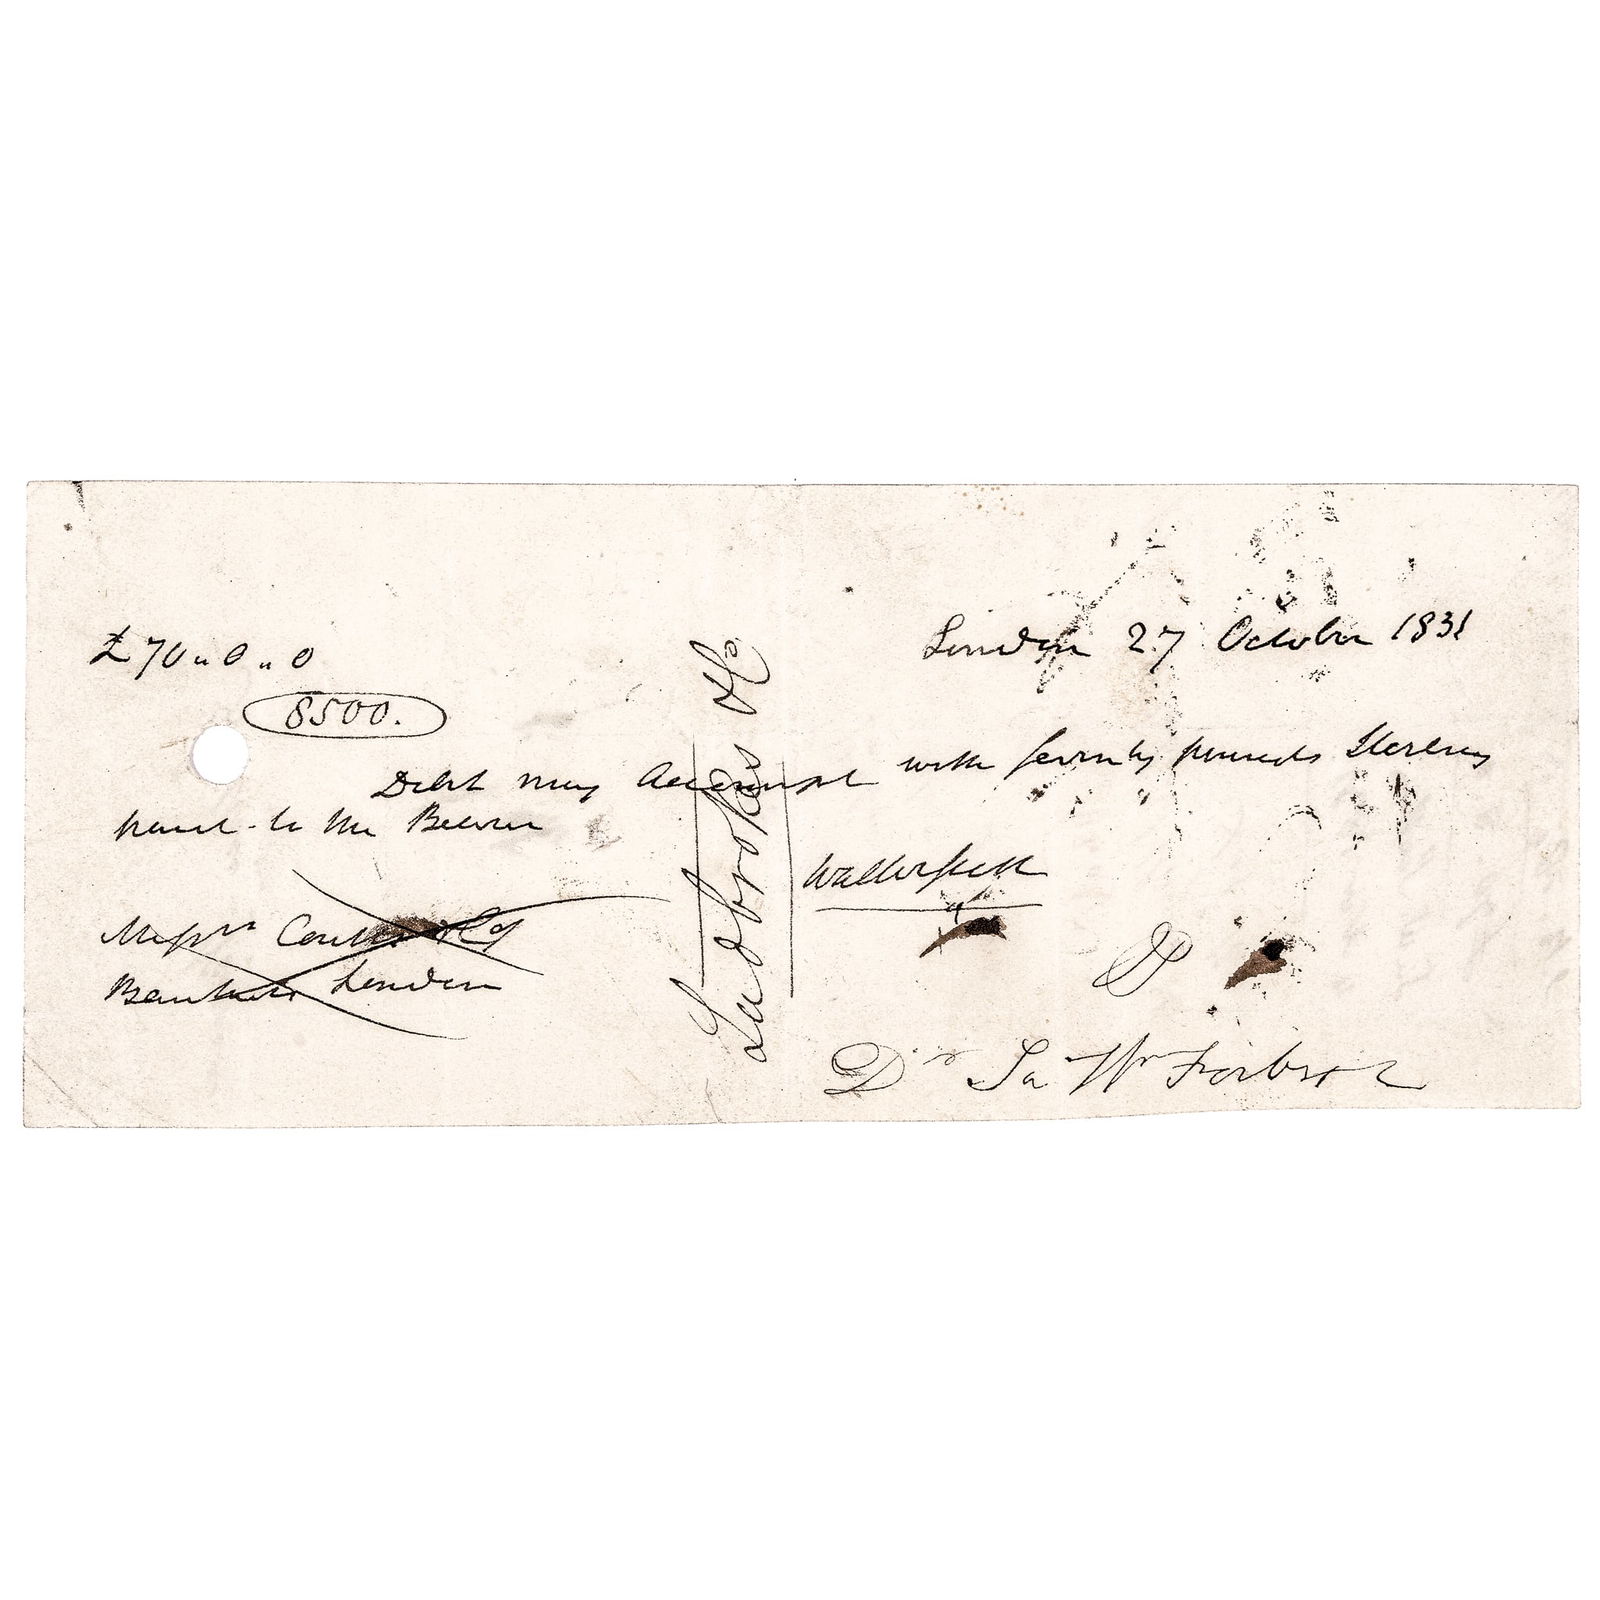 London 27 October 1831
£70 " 0 " 0
8500.
Debit my Account with seventy pounds Sterling
paid to the Bearer
Walter Scott
Messrs Coutts & Co
Bankers London
Lubbokes & Co
Dr Sr Wm Forbes &